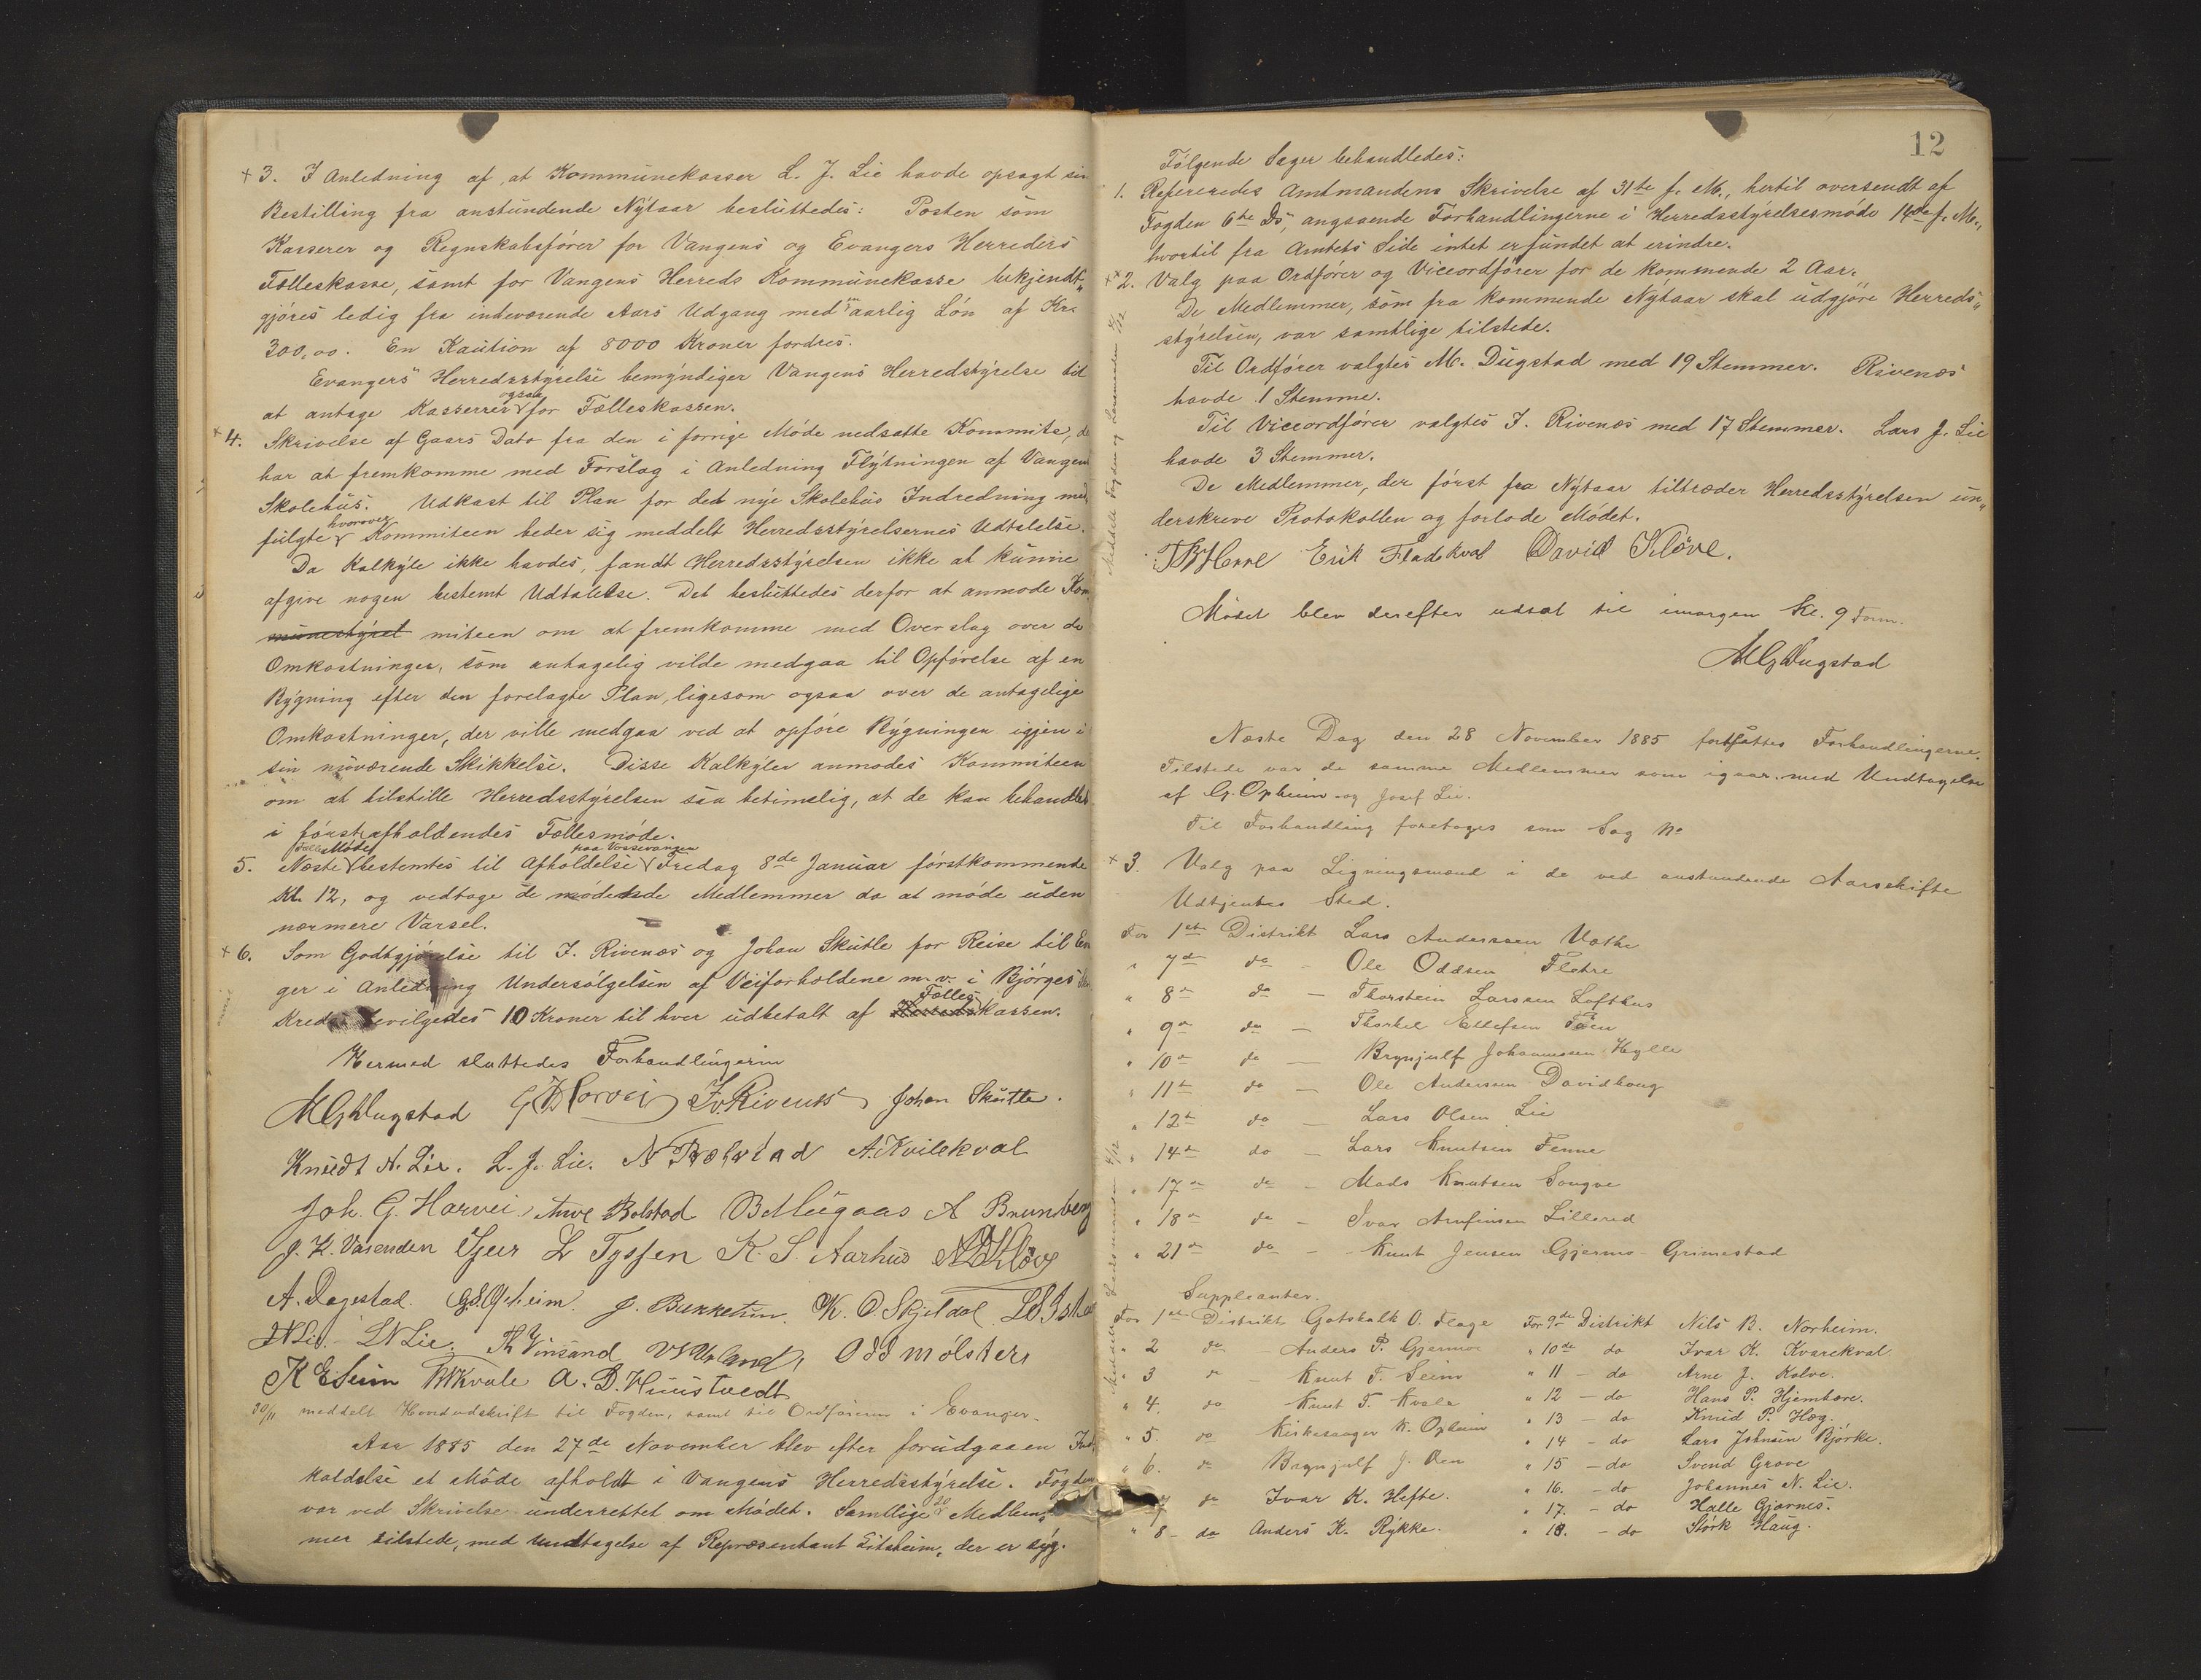 + 3. I Anledning af, at Kommunekasser L. J. Lie havde opsagt sin
Bestilling fra anstundende Nytaar besluttedes: Posten som
Kasserer og Regnskabsfører for Vangens og Evangers Herreders
Fælleskasse, samt for Vangens Herreds Kommunekasse bekjendt„
gjøres ledig fra indeværende Aars Udgang med en aarlig Løn af Kr.
300,00. En Kaution af 8000 Kroner fordres.
Evangers Herredsstyrelse bemyndiger Vangens Herredstyrelse til
at antage Kasserrer ogsaa for Fælleskassen.
+ 4. Skrivelse af Gaars Dato fra den i forrige Møde nedsatte Kommite, de
har at fremkomme med Forslag i Anledning Flytningen af Vangens
Skolehus. Udkast til Plan for det nye Skolehus Indredning med
fulgte hvorover Kommiteen beder sig meddelt Herredsstyrelsernes Udtalelse.
Da Kalkyle ikke havdes, fandt Herredsstyrelsen ikke at kunne
afgive nogen bestemt Udtalelse. Det besluttedes derfor at anmode Kom
munestyret miteen om at fremkomme med Overslag over de
Omkostninger, som antagelig vilde medgaa til Opførelse af en
Bygning efter den forelagte Plan, ligesom ogsaa over de antagelige
Omkostninger, der ville medgaa ved at opføre Bygningen igjen i
sin nuværende Skikkelse. Disse Kalkyler anmodes Kommiteen
om at tilstille Herredsstyrelsen saa betimelig, at de kan behandles
i førstafholdendes Fællesmøde.
5. Næste Fælles Møde bestemtes til Afholdelse paa Vossevangen Fredag 8de Januar førstkommende
Kl. 12, og vedtoge de mødende Medlemmer da at møde uden
nærmere Varsel.
+ 6. Som Godtgjørelse til I. Rivenæs og Johan Skutle for Reise til Evan
ger i Anledning Undersølgelsen af Veiforholdene m.v. i Bjørges
Kreds bevilgedes 10 Kroner til hver udbetalt af Herreds Fælles kassen.
Hermed sluttedes Forhandlingerne
MGDugstad GBHorvei IvRivenæs Johan Skutle.
Knudt N. Lie. L. J. Lie. N Bolstad A. Kvilekval
Joh. G. Horvei. Arne Bolstad B Mügaas A Brunborg
J. K. Vasenden Sjur L Tyssen K. S. Aarhus
A. Dagestad. J. K. O. Skjeldal
LN Lie. Th Vinsand Odd Mølster
K E Seim Kvale A. B. Huustvedt
30/11 meddelt Hovedudskrift til Fogden, samt til Ordføreren i Evanger.
Aar 1885 den 27de November blev efter forudgaaen Ind
kaldelse et Møde afholdt i Vangens Herredsstyrelse. Fogden
var ved Skrivelse underrettet om Mødet. Samtlige 20 Medlem„
mer tilstede, med undtagelse af Repræsentant Gitsheim, der er syg.
12
Følgende Sager behandledes:
1. Refereredes Amtmandens Skrivelse af 31te f. M., hertil oversendt af
Fogden 6te Ds, angaaende Forhandlingerne i Herredsstyrelsesmøde 14de f. M.,
hvortil fra Amtets Side intet erfundet at erindre.
+ 2. Valg paa Ordfører og Viceordfører for de kommende 2 Aar.
De Medlemmer, som fra kommende Nytaar skal udgjøre Herreds„
styrelsen, var samtlige tilstede.
Til Ordfører valgtes M. Dugstad med 19 Stemmer. Rivenæs
havde 1 Stemme.
Til Viceordfører valgtes I. Rivenæs med 17 Stemmer. Lars J. Lie
havde 3 Stemmer.
De Medlemmer, der først fra Nytaar tiltræder Herredsstyrelsen un„
derskreve Protokollen og forlode Mødet.
Erik Fladekval David Kløve.
Mødet blev derefter udsat til imorgen Kl. 9 Form.
MGDugstad
Næste Dag den 28 November 1885 fortsattes Forhandlingerne.
Tilstede var de samme Medlemmer som igaar med Undtagelse
af G. Opheim og Josef Lie.
Til Forhandling foretoges som Sag No
+ 3. Valg paa Ligningsmænd i de ved anstundende Aarsskifte
Udtjentes Sted.
For 1ste Distrikt Lars Anderssen Væthe
" 7de do - Ole Oddsen Fletre
" 8de do - Thorstein Larssen Lofthus
" 9de do - Thorkel Ellefsen Tøen
" 10de do - Brynjulf Johannessen Hylle
" 11te do - Ole Andersen Davidhaug
" 12te do - Lars Olsen Lie
" 14de do - Lars Knutsen Fenne
" 17de do - Mads Knutsen Songve
" 18de do - Ivar Arnfinsen Lillered
" 21de do - Knut Jensen Gjermo-Grimestad
Suppleanter.
For 1ste Distrikt Gotskalk O. Flage For 9de Distrikt Nils B. Norheim.
" 2 do Anders P. Gjermo " 10de do Ivar K. Kvarekval.
" 3 do Knut T. Seim " 11 - do Arne J. Kolve.
" 4. do Knut T. Kvale " 12 - do Hans P. Hjembore.
" 5 do Kirkesanger K. Opheim " 13 - do Knud P. Hæg.
" 14 - do Lars Johnsen Bjørke.
" 6. do Brynjulf J. Øen " 15 - do Svend Grove
7 do Ivar K. Hefte. " 16. - do Johannes N. Lie.
" 17. - do Halle Gjærnes.
" 8 - do Anders K. Rykke. " 18. - do Størk Haug.